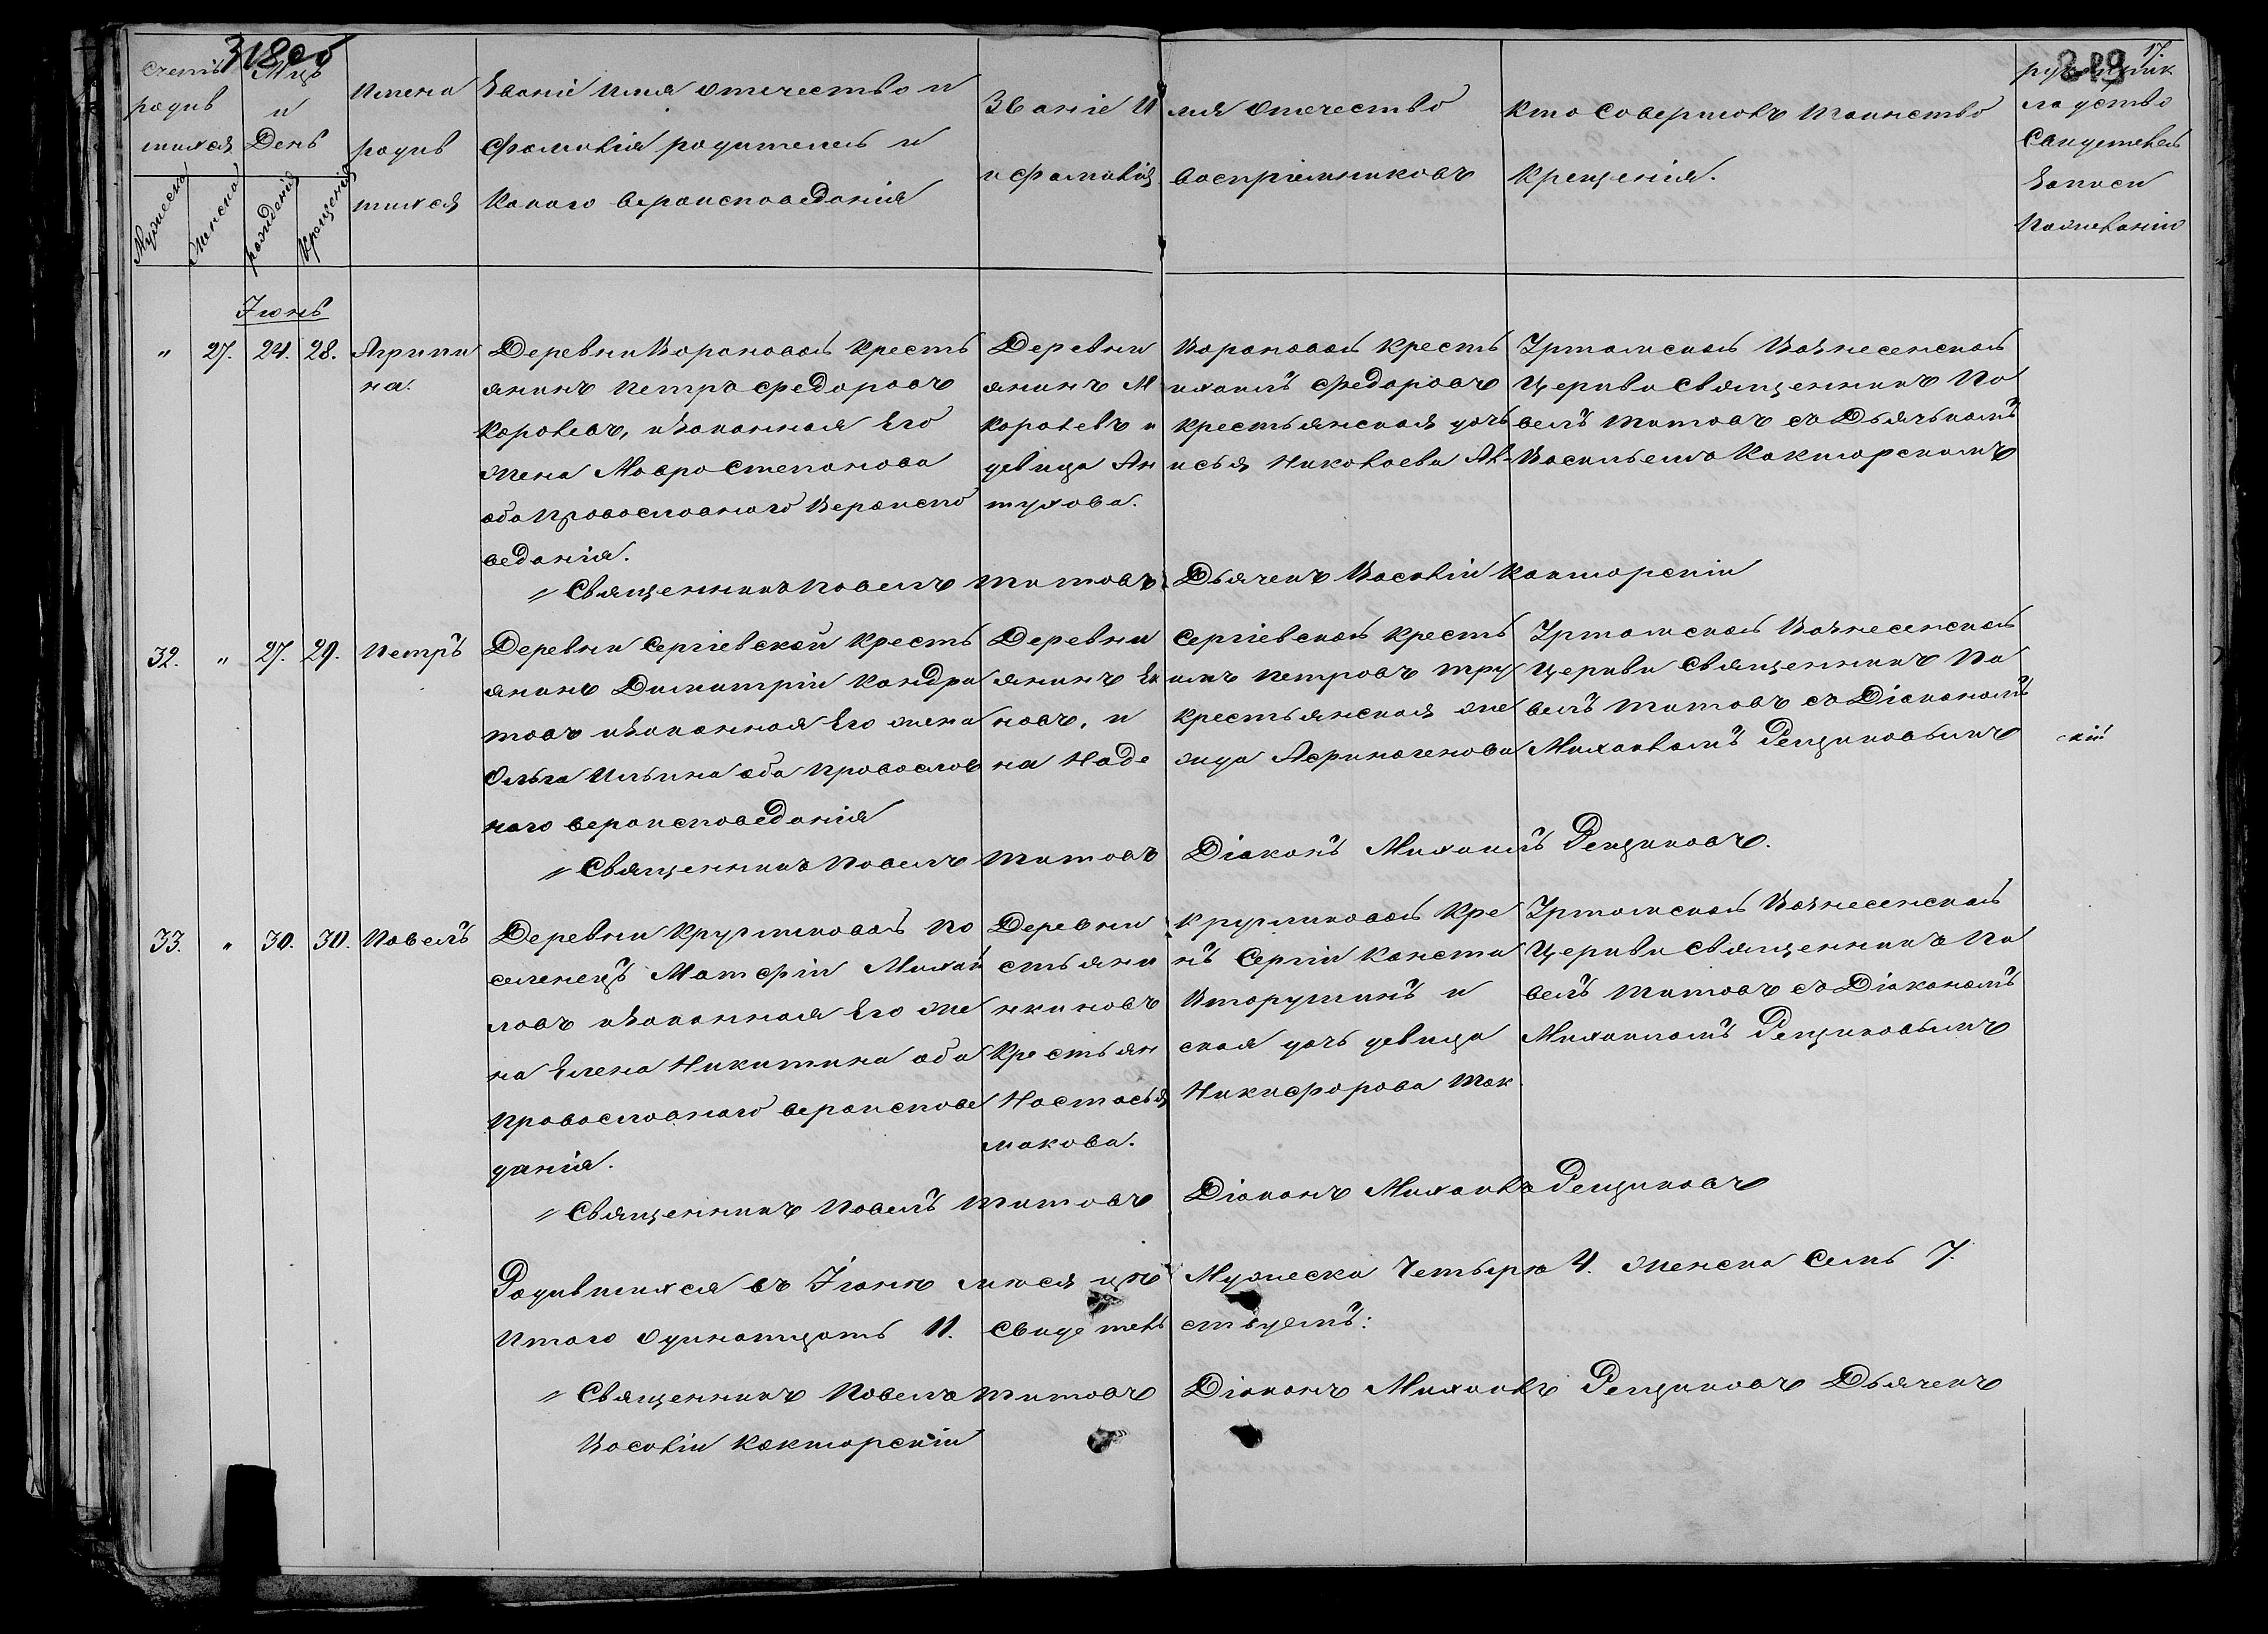 318об
319
17.
Счетъ родив шихся
Мужеска
Женска
Мцъ и День
рожденія
Крещенія
Имена родив шихся
Званіе Имя отчество и
фамилія родителей и
Какого вероисповеданія
Званіе Имя отчество
и фамилія воспріемниковъ
Кто Совершилъ таинство
Крещенія.
ладство
Свидетель
Записи
По желанію
Іюнь
" 27. 24. 28. Агрипи
на.
Деревни Вороновой Кресть
янинъ Петръ Федоровъ
Королевъ, изаконная Его
жена Мавра Степанова
оба Православнаго Вероиспо
веданія.
Деревни Вороновой Кресть
янинъ Михаилъ Федоровъ
Королевъ и крестьянская дочь
девица Анисья Николаева Ал-
тухова.
Уртамской Вознесенской
Церкви Священникъ Па
велъ Титовъ съ Дьячькомъ
Васильемъ Кокшарскимъ
" Священникъ Павелъ Титовъ Дьячекъ Василій Кокшарскій
32. " 27. 29. Петръ
Деревни Сергіевской Кресть
янинъ Димитрій Кондра
товъ изаконная Его жена
Ольга Ильина оба Православ
наго вероисповеданія
Деревни Сергіевской Кресть
янинъ Екимъ Петровъ Тру
новъ, и крестьянская же
на Наде жда Афиногенова
Уртамской Вознесенской
Церкви Священникъ Па
велъ Титовъ съ Діакономъ
Михаиломъ Рещиковымъ
скій
" Священникъ Павелъ Титовъ Діаконъ Михаилъ Рещиковъ.
33. " 30. 30. Павелъ
Деревни Кругликовой По
селенецъ Матфій Михай
ловъ изаконная Его же
на Елена Никитина оба
Православнаго вероиспове
данія.
Деревни Кругликовой Кре
стьянинъ Сергій Конста
нкиновъ Вторушинъ и
Крестьянская дочь девица
Настасья Никифорова Ток
макова.
Уртамской Вознесенской
Церкви Священникъ Па
велъ Титовъ съ Діакономъ
Михаиломъ Рещиковымъ
" Священникъ Павелъ Титовъ Діаконъ Михаилъ Рещиковъ
Родившихся въ Іюнѣ месяцѣ Мужеска Четыре 4. женска Семь 7.
Итого Одинатцать 11. Свидетельствуемъ:
" Священникъ Павелъ Титовъ Діаконъ Михаилъ Рещиковъ Дьячекъ
Василій Кокшарскій